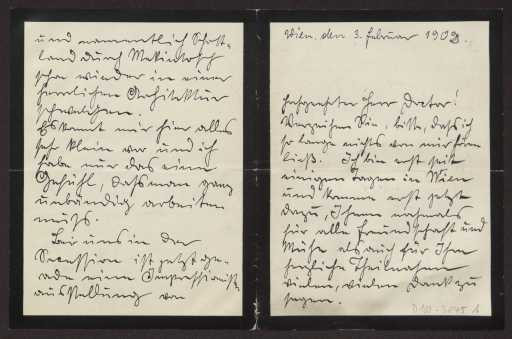 Wien, den 3. Februar 1902.
Hochgeehrter Herr Doctor!
Verzeihen Sie bitte, daß ich
so lange nichts von mir hören
ließ. Ich bin erst seit
einigen Tagen in Wien
und komme erst jetzt
dazu, Ihnen nochmals
für alle Freundschaft und
Mühe als auch für Ihre
herzliche Theilnahme
vielen, vielen Dank zu
sagen.
und namentlich Schott-
land durch Makintosch
schon wieder in einer
herrlichen Architektur
schwelgen.
Es kommt mir hier alles
sehr klein vor und ich
habe nur das eine
Gefühl, dass man ganz
unbändig arbeiten
muss.
Bei uns in der
Secession ist jetzt ge-
rade eine Impressionist-
ausstellung von